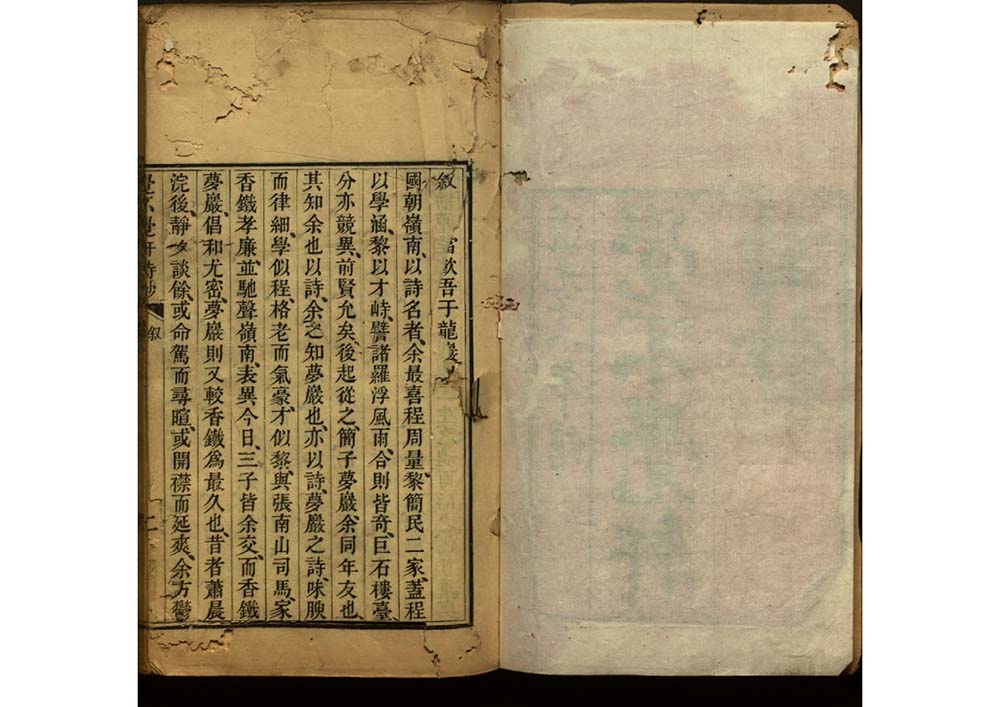 叙
國朝嶺南、以詩名者、余最喜程周量、黎簡民二家、蓋程
以學涵、黎以才峙、譬諸羅浮風雨、合則皆奇、巨石樓臺、
分亦競異、前賢允矣、後起從之、簡子夢巖、余同年友也、
其知余也以詩、余之知夢巖也、亦以詩、夢巖之詩、味腴
而律細、學似程、格老而氣豪、才似黎、與張南山司馬、家
香鐵孝廉、並馳聲嶺南、表異今日、三子皆余交、而香鐵
夢巖、倡和尤密、夢巖則又較香鐵為最久也、昔者蕭晨
浣後、靜夕談餘、或命駕而尋暄、或開襟而延爽、余方鬱
覺不覺軒詩鈔 叙 二